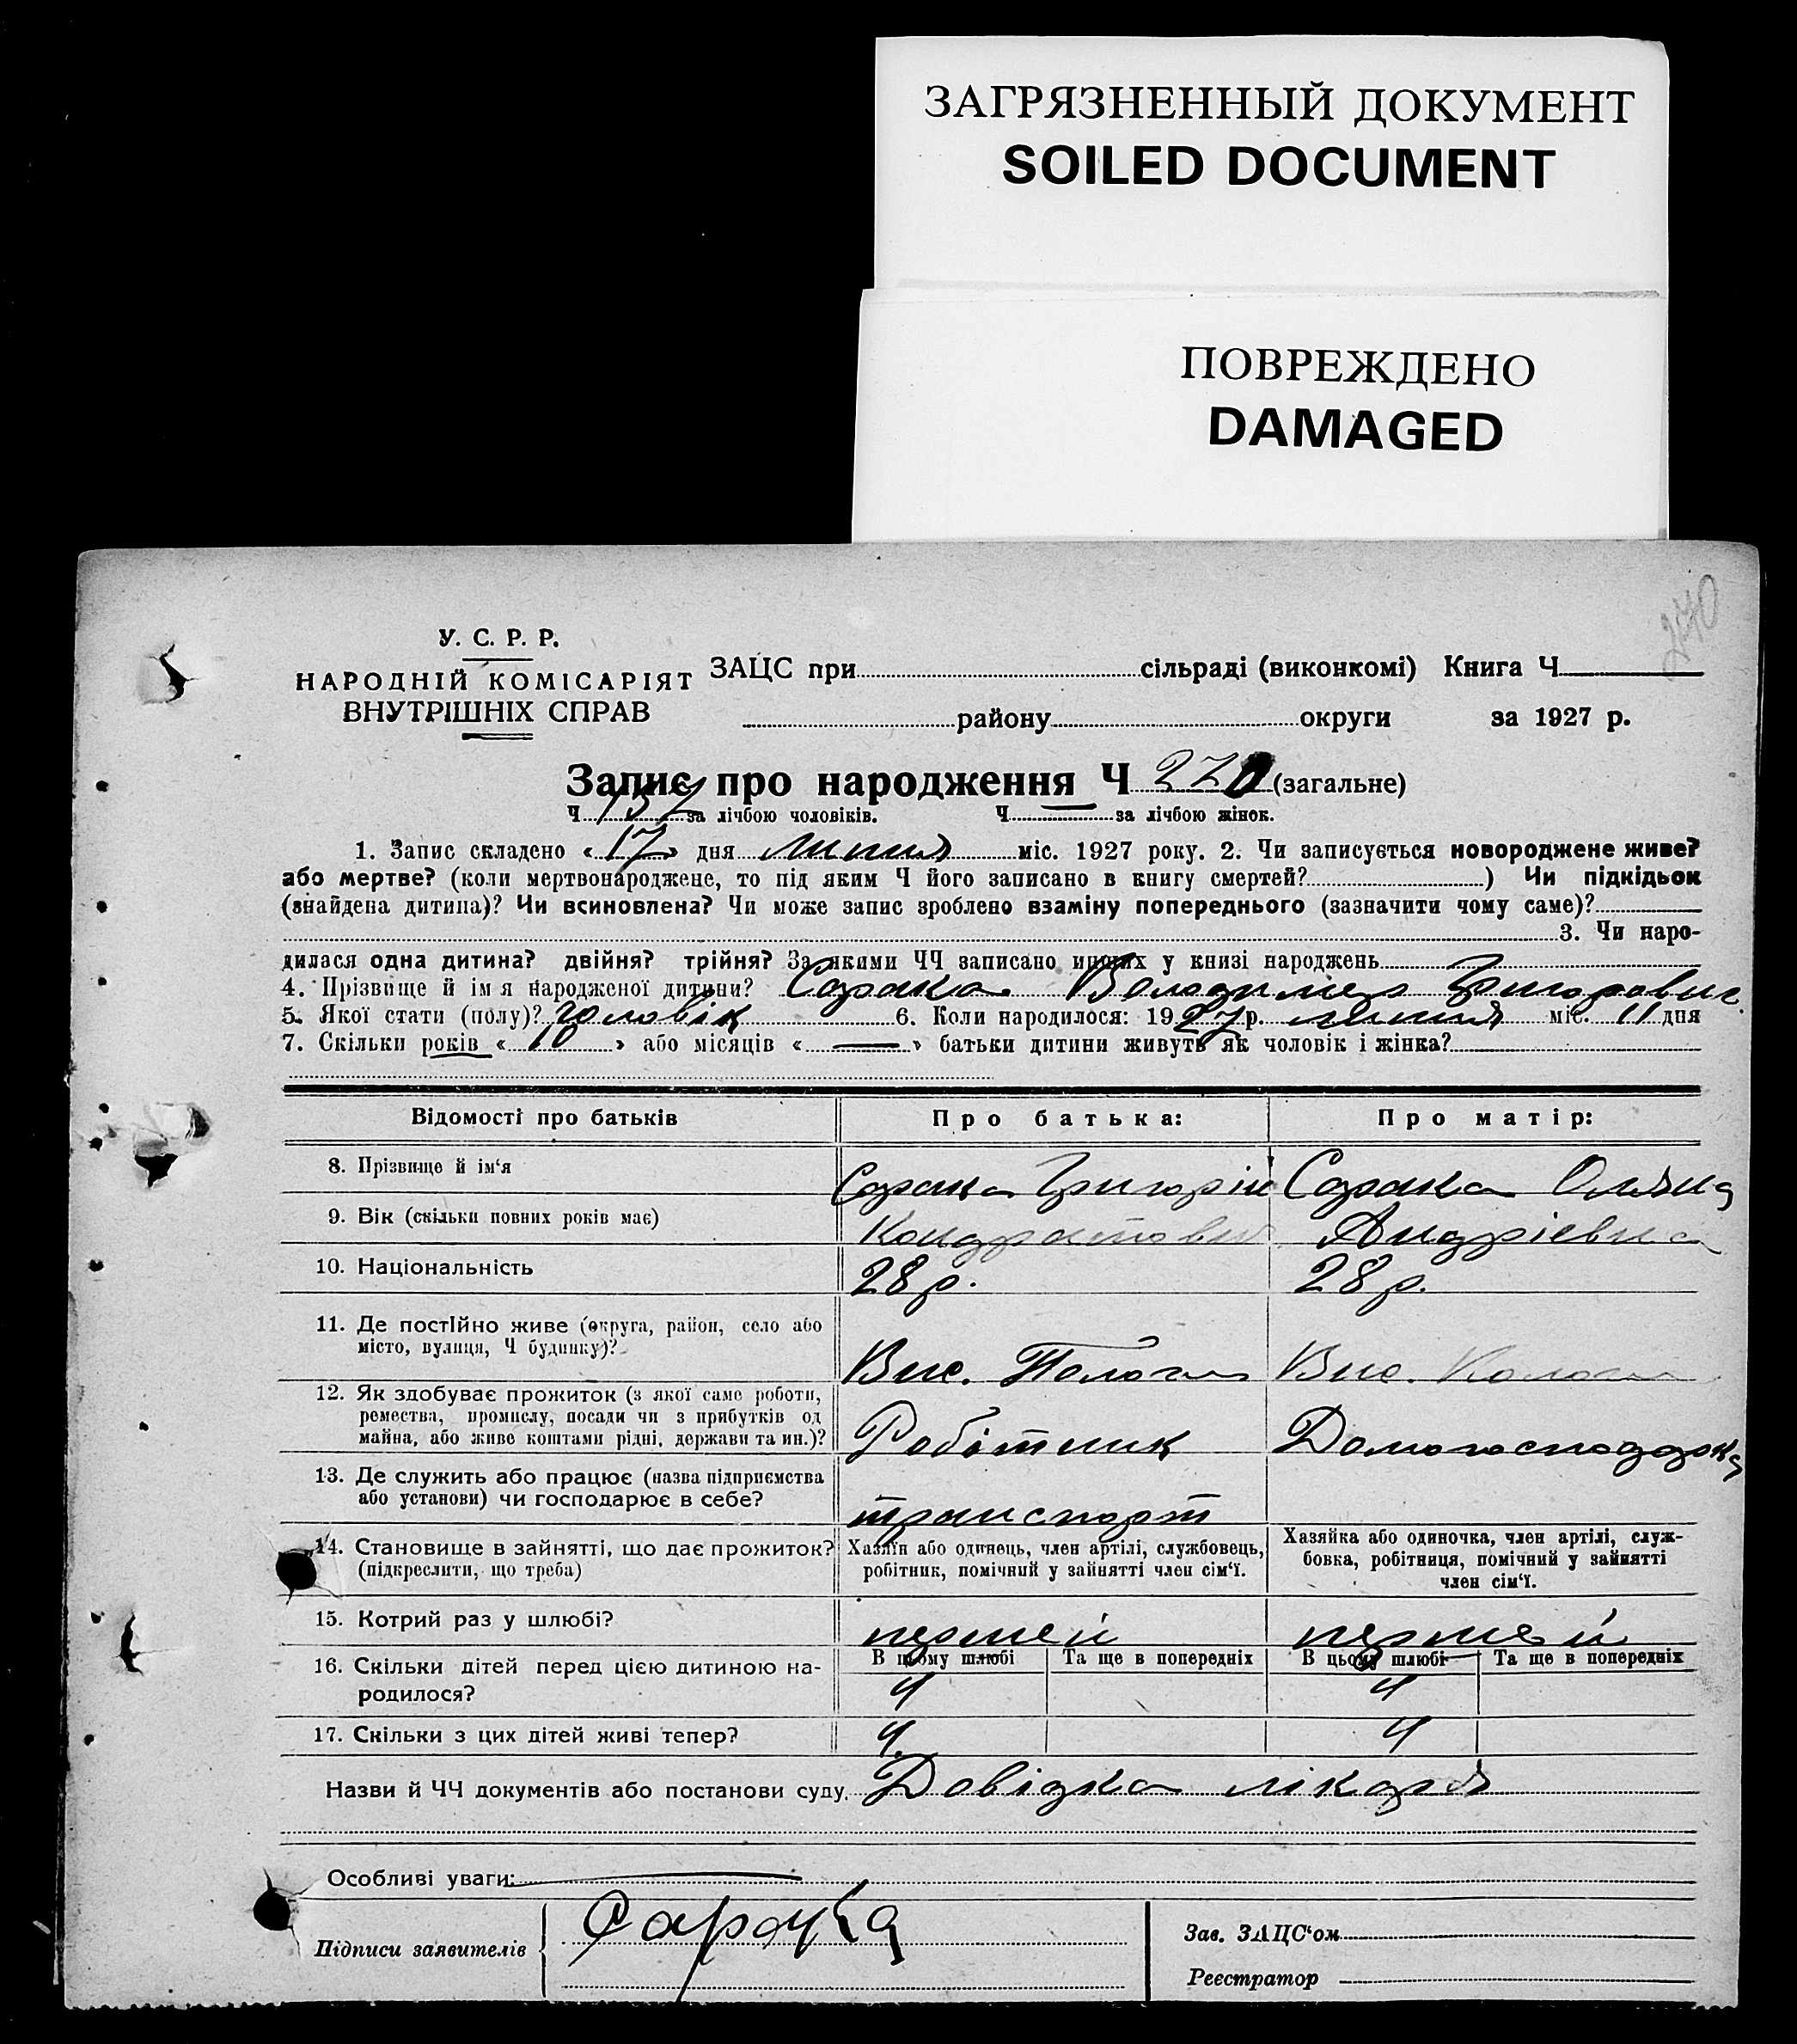 ЗАГРЯЗНЕННЫЙ ДОКУМЕНТ
SOILED DOCUMENT
ПОВРЕЖДЕНО
DAMAGED
270
У. С. Р. Р.
НАРОДНІЙ КОМІСАРІЯТ
ВНУТРІШНІХ СПРАВ
ЗАЦС при сільраді (виконкомі) Книга Ч
району округи за 1927 р.
Запис про народження Ч 270 (загальне)
Ч 137 за лічбою чоловіків. Ч — за лічбою жінок.
1. Запис складено «17» дня липня міс. 1927 року. 2. Чи записується новороджене живе?
або мертве? (коли мертвонароджене, то під яким Ч його записано в книгу смертей? ) Чи підкідьок
(знайдена дитина)? Чи всиновлена? Чи може запис зроблено взаміну попереднього (зазначити чому саме)?
3. Чи наро-
дилася одна дитина? двійня? трійня? За якими ЧЧ записано инших у книзі народжень
4. Прізвище й ім я народженої дитини? Сорока Володимер Григорович
5. Якої стати (полу)? Чоловік 6. Коли народилося: 1927 р. липня міс. 11 дня
7. Скільки років «10» або місяців «—» батьки дитини живуть як чоловік і жінка?
Відомості про батьків Про батька: Про матір:
8. Прізвище й ім‘я Сорока Григорій Сорока
9. Вік (скільки повних років має) Кондратович Андрієвна
10. Національність 28 р. 28 р.
11. Де постІйно живе (округа, район, село або
місто, вулиця, Ч будинку)? Вис. Пологи Вис. Пологи
12. Як здобуває прожиток (з якої саме роботи,
ремества, промислу, посади чи з прибутків од
майна, або живе коштами рідні, держави та ин.)? Робітник Домогосподарка
13. Де служить або працює (назва підприємства
або установи) чи господарює в себе? транспорт
14. Становище в зайнятті, що дає прожиток?
(підкреслити, що треба)
Хазяїн або одинець, член артілі, службовець,
робітник, помічний у зайнятті член сім‘ї.
Хазяйка або одиночка, член артілі, служ-
бовка, робітниця, помічний у зайнятті
член сім‘ї.
15. Котрий раз у шлюбі? первий первий
16. Скільки дітей перед цією дитиною на-
родилося?
В цьому шлюбі Та ще в попередніх В цьому шлюбі Та ще в попередніх
4 4
17. Скільки з цих дітей живі тепер? 4. 4
Назви й ЧЧ документів або постанови суду. Довідка лікаря
Особливі уваги: —
Підписи заявителів
Зав. ЗАЦС‘ом
Реєстратор